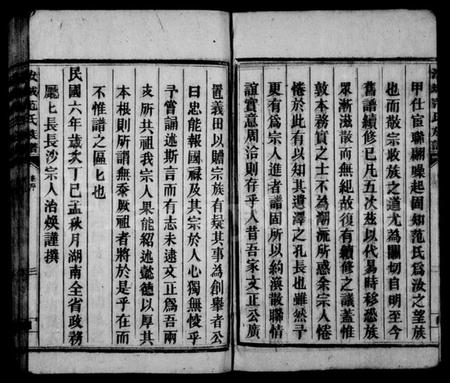 甲仕宦聯翩噪起固知范氏爲汝之望族
也而敬宗收族之道尤爲關切自明至今
舊譜續修已凡五次茲以代易時移恐族
眾漸滋散而無紀故復有續修之議蓋惟
敦本務實之士不為潮流所惑余宗人惓
惓於此有以知其遺澤之孔長也雖然予
更有為宗人進者譜固所以約渙散聯情
誼實意周洽則存乎人昔吾家文正公廣
置義田以贍宗族有疑其事為創舉者公
曰忠能報國祿及其宗於人心獨無恔乎
予嘗誦述斯言而有志未逮文正爲吾兩
支所共祖我宗人果能紹述懿德以厚其
本根則所謂無忝厥祖者將於是乎在而
不惟譜之區區也
民國六年歲次丁巳孟秋月湖南全省政務
廳廳長長沙宗人治煥謹撰
汝城范氏族譜
卷首
三